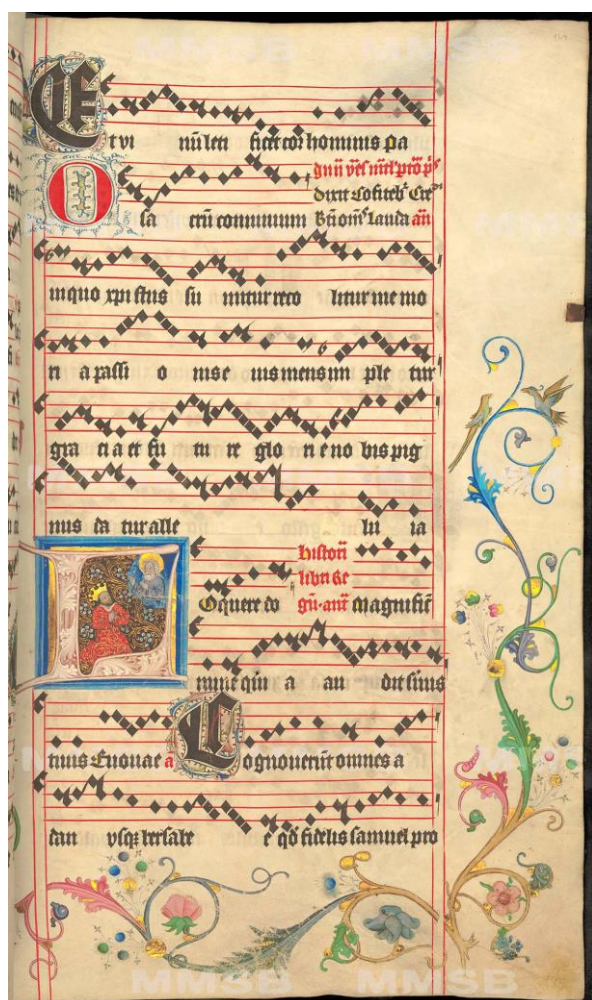 Et vi nū leti ficet cor hominis pa
gnū
dixit Cōfiteb
O sa crū conuiuium Lauda añ
in quo xpi stus su mitur reco litur me mo
ri a passi o nis e ius mens im ple tur
gra ti a et fu tu re glo ri e no bis pig
nus da tur alle lu ia
histori
libri Re
Loquere do gū ant magnificat
mine qui a au dit seruus
tuus Euouae a Cognouerūt omnes a
dan vsqz bersabe e qd fidelis samuel pro
MMSB